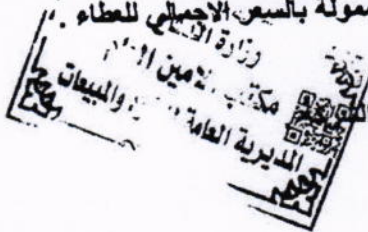 مولة بالسعر الاجمالي للعطاء .
وزارة
مكتب الامين
المديرية العامة والمبيعات